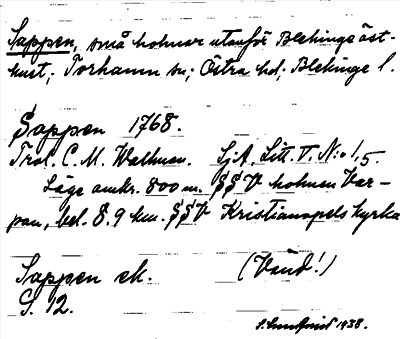 Sappen, små holmar utanför Blekinge öst-
kust, Torhamn sn; Östra hd, Blekinge l.
Sappen 1768.
Trol. C. M. Wallman. SjA. Litt. V. No 1,5.
Läge omkr. 800 m. SSV holmen Var-
pan, bel. 8.9 km. SSV Kristianopels kyrka
Sappen ek. (Vänd!)
S. 12.
1938.